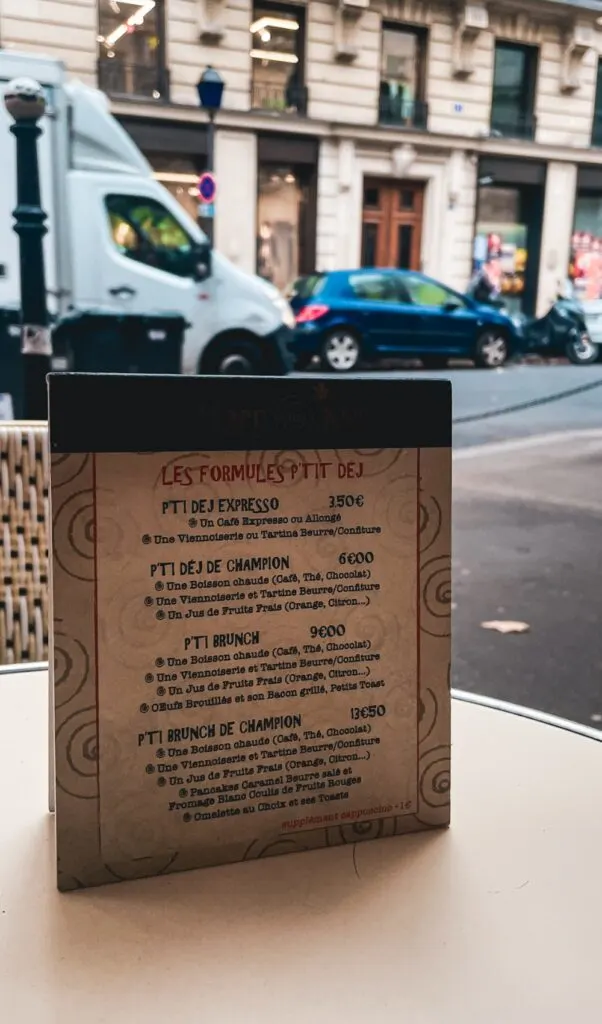 LES FORMULES P'TIT DEJ
P'TI DEJ EXPRESSO 3.50€
Un Café Expresso ou Allongé
Une Viennoiserie ou Tartine Beurre/Confiture
P'TI DÉJ DE CHAMPION 6€00
Une Boisson chaude (Café, Thé, Chocolat)
Une Viennoiserie et Tartine Beurre/Confiture
Un Jus de Fruits Frais (Orange, Citron...)
P'TI BRUNCH 9€00
Une Boisson chaude (Café, Thé, Chocolat)
Une Viennoiserie et Tartine Beurre/Confiture
Un Jus de Fruits Frais (Orange, Citron...)
Œufs Brouillés et son Bacon grillé, Petits Toast
P'TI BRUNCH DE CHAMPION 13€50
Une Boisson chaude (Café, Thé, Chocolat)
Une Viennoiserie et Tartine Beurre/Confiture
Un Jus de Fruits Frais (Orange, Citron...)
Pancakes Caramel Beurre salé et
Fromage Blanc Coulis de Fruits Rouges
Omelette au Choix et ses Toasts
supplément cappuccino +1€